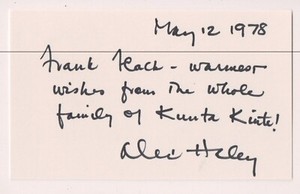 May 12 1978
Frank – warmest
wishes from the whole
family of Kunta Kinte!
Alex Haley